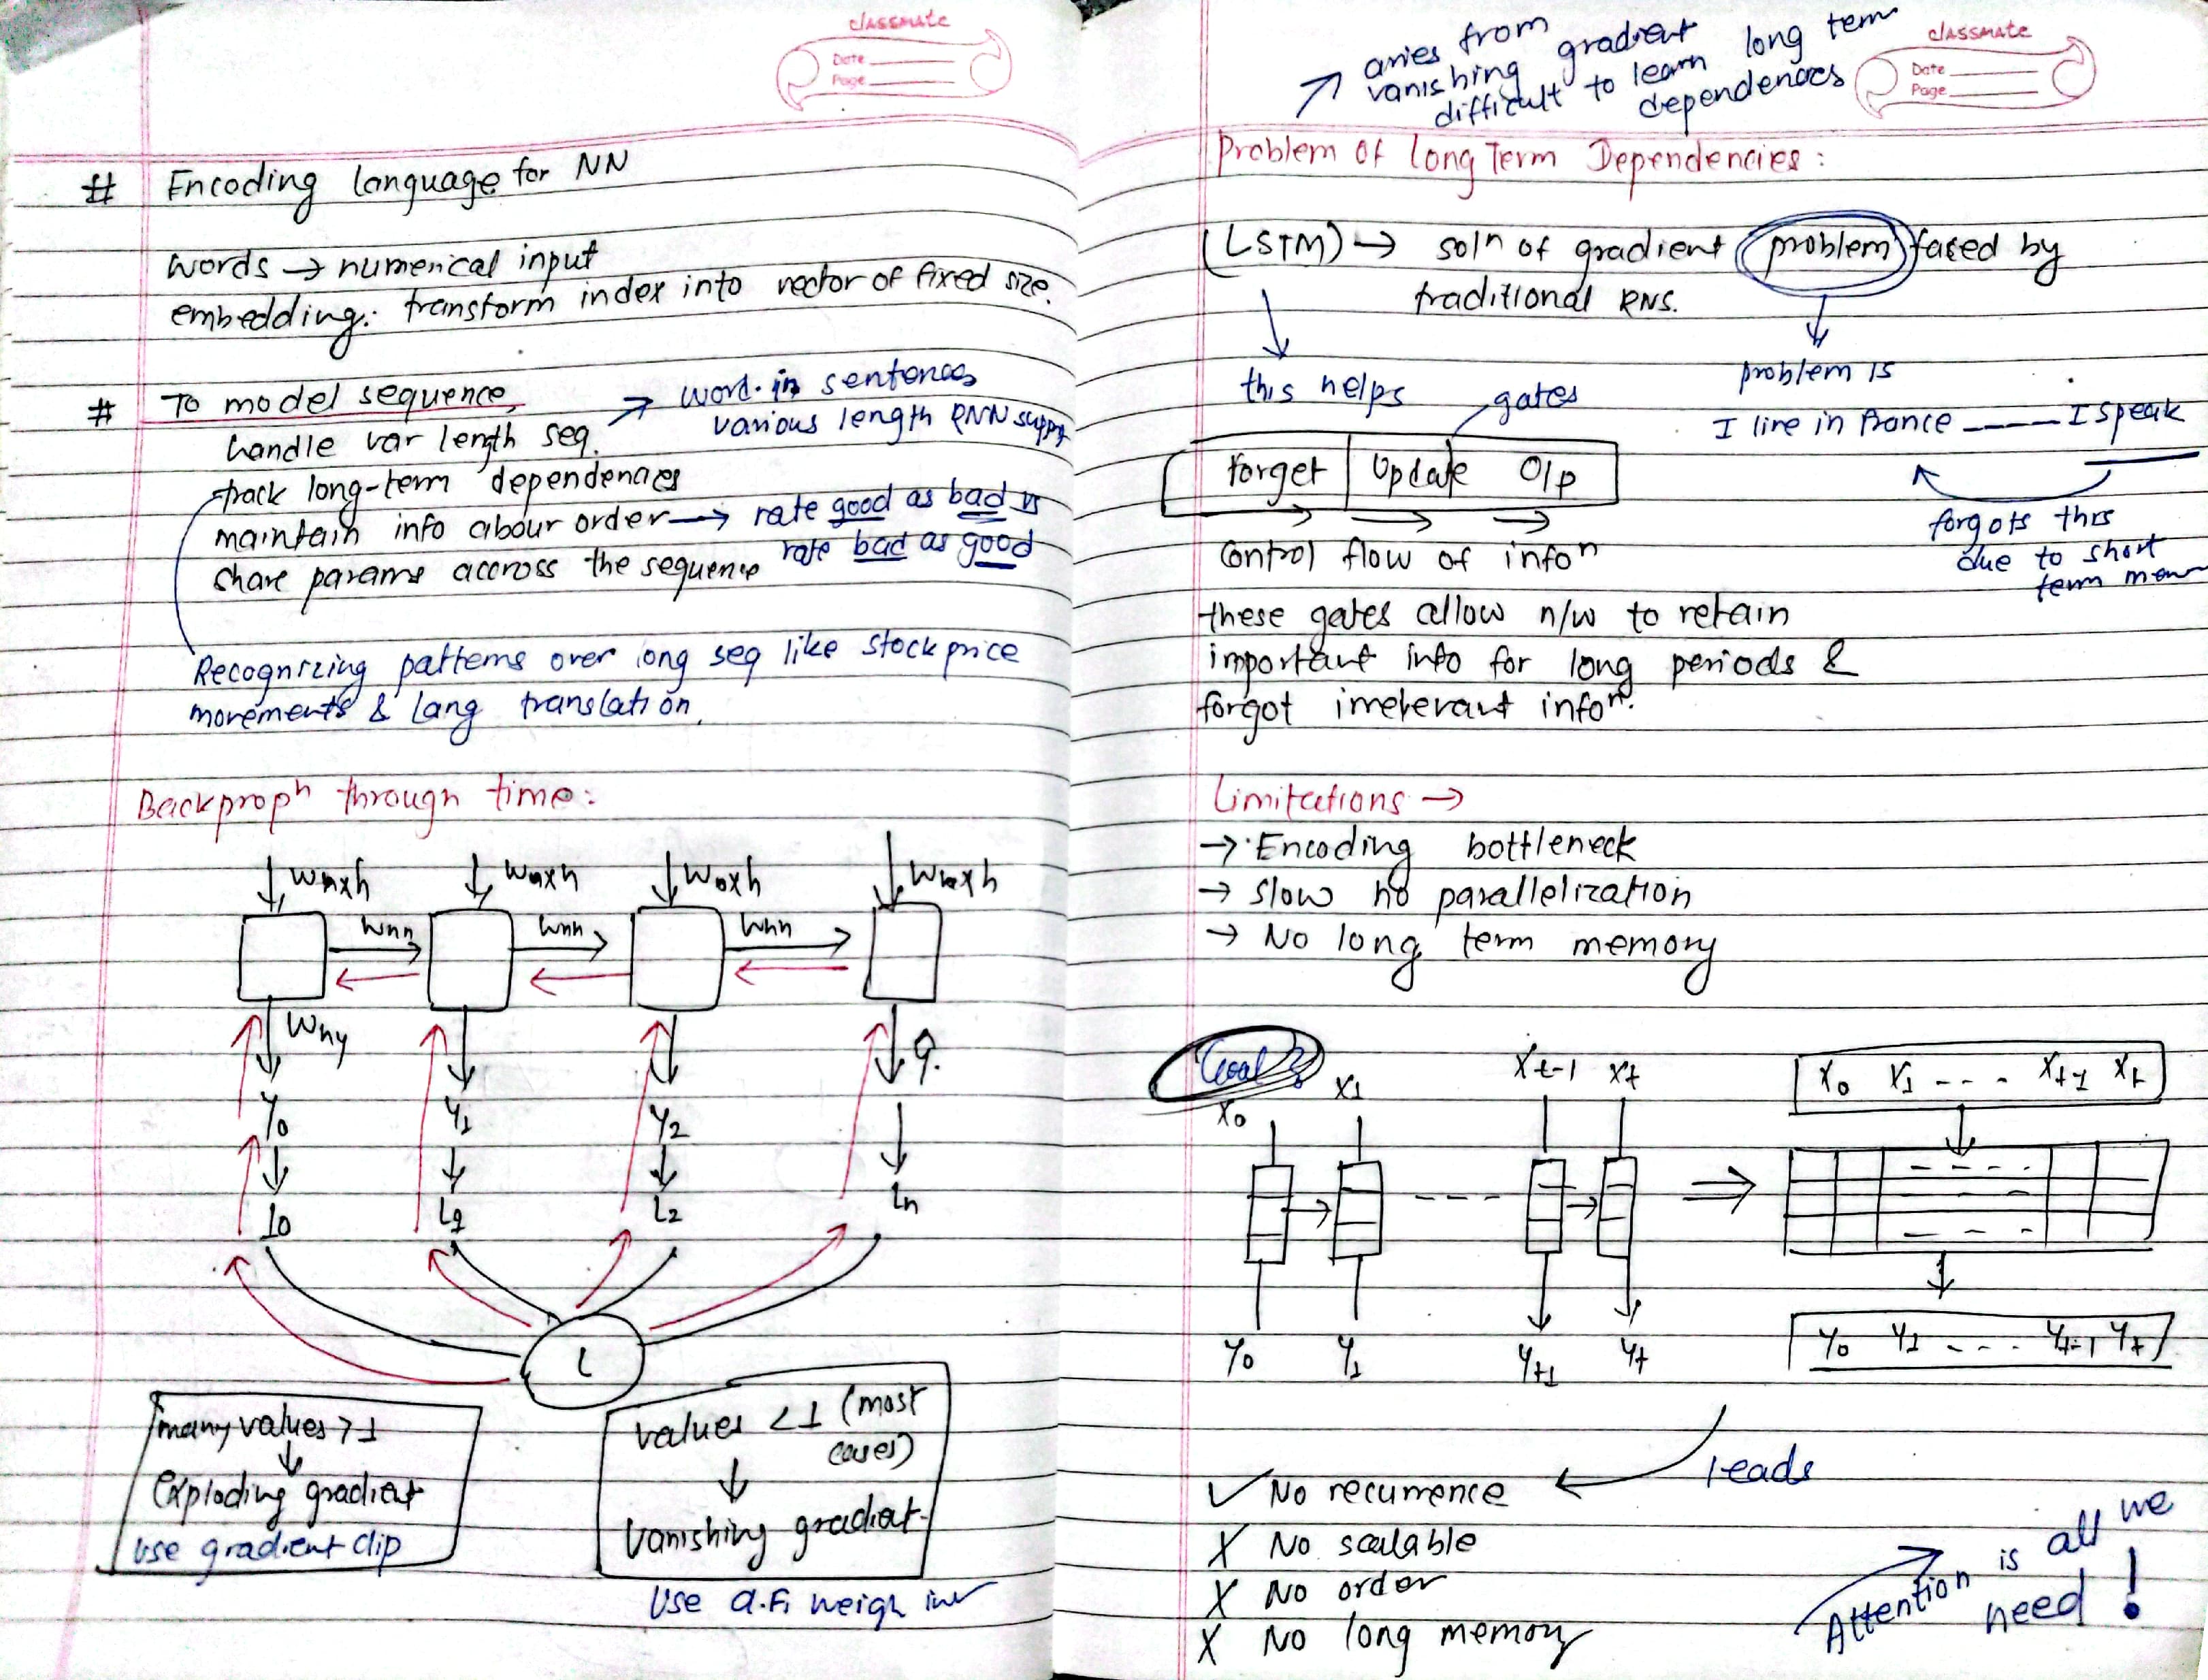 classmate
Date
Page
# Encoding language for NN
words → numerical input
embedding: transform index into vector of fixed size.
# To model sequence,
→ word in sentences
various length RNN supp
handle var length seq.
track long-term dependencies
maintain info abour order → rate good as bad vs
rate bad as good
share params accross the sequence
Recognizing patterns over long seq like stock price
movements & lang translation.
Backpropⁿ through time:
Wnn Wnn Wnn
Why
ŷ.
Y0 Y1 Y2
L0 L1 L2 Ln
L
many values >1
↓
Exploding gradient
use gradient clip
values <1 (most
cases)
↓
Vanishing gradient
Use a.f.
classmate
Date
Page
arries from
vanishing gradient
difficult to learn long term
dependences
Problem of Long Term Dependencies:
(LSTM) → solⁿ of gradient problem faced by
traditional RNS.
this helps
gates
forget Update O/p
control flow of infoⁿ
problem is
I live in France ----- I speak
forgots this
due to short
term mem
these gates allow n/w to retain
important info for long periods &
forgot irrelevant infoⁿ.
Limitations →
→ Encoding bottleneck
→ slow no parallelization
→ No long term memory
Goal
X0 X1 Xt-1 Xt
X0 X1 ---- Xt-1 Xt
Y0 Y1 Yt-1 Yt
Y0 Y1 ---- Yt-1 Yt
leads
✓ No recurrence
X No scalable
X No order
X No long memory
Attention is all we
need!